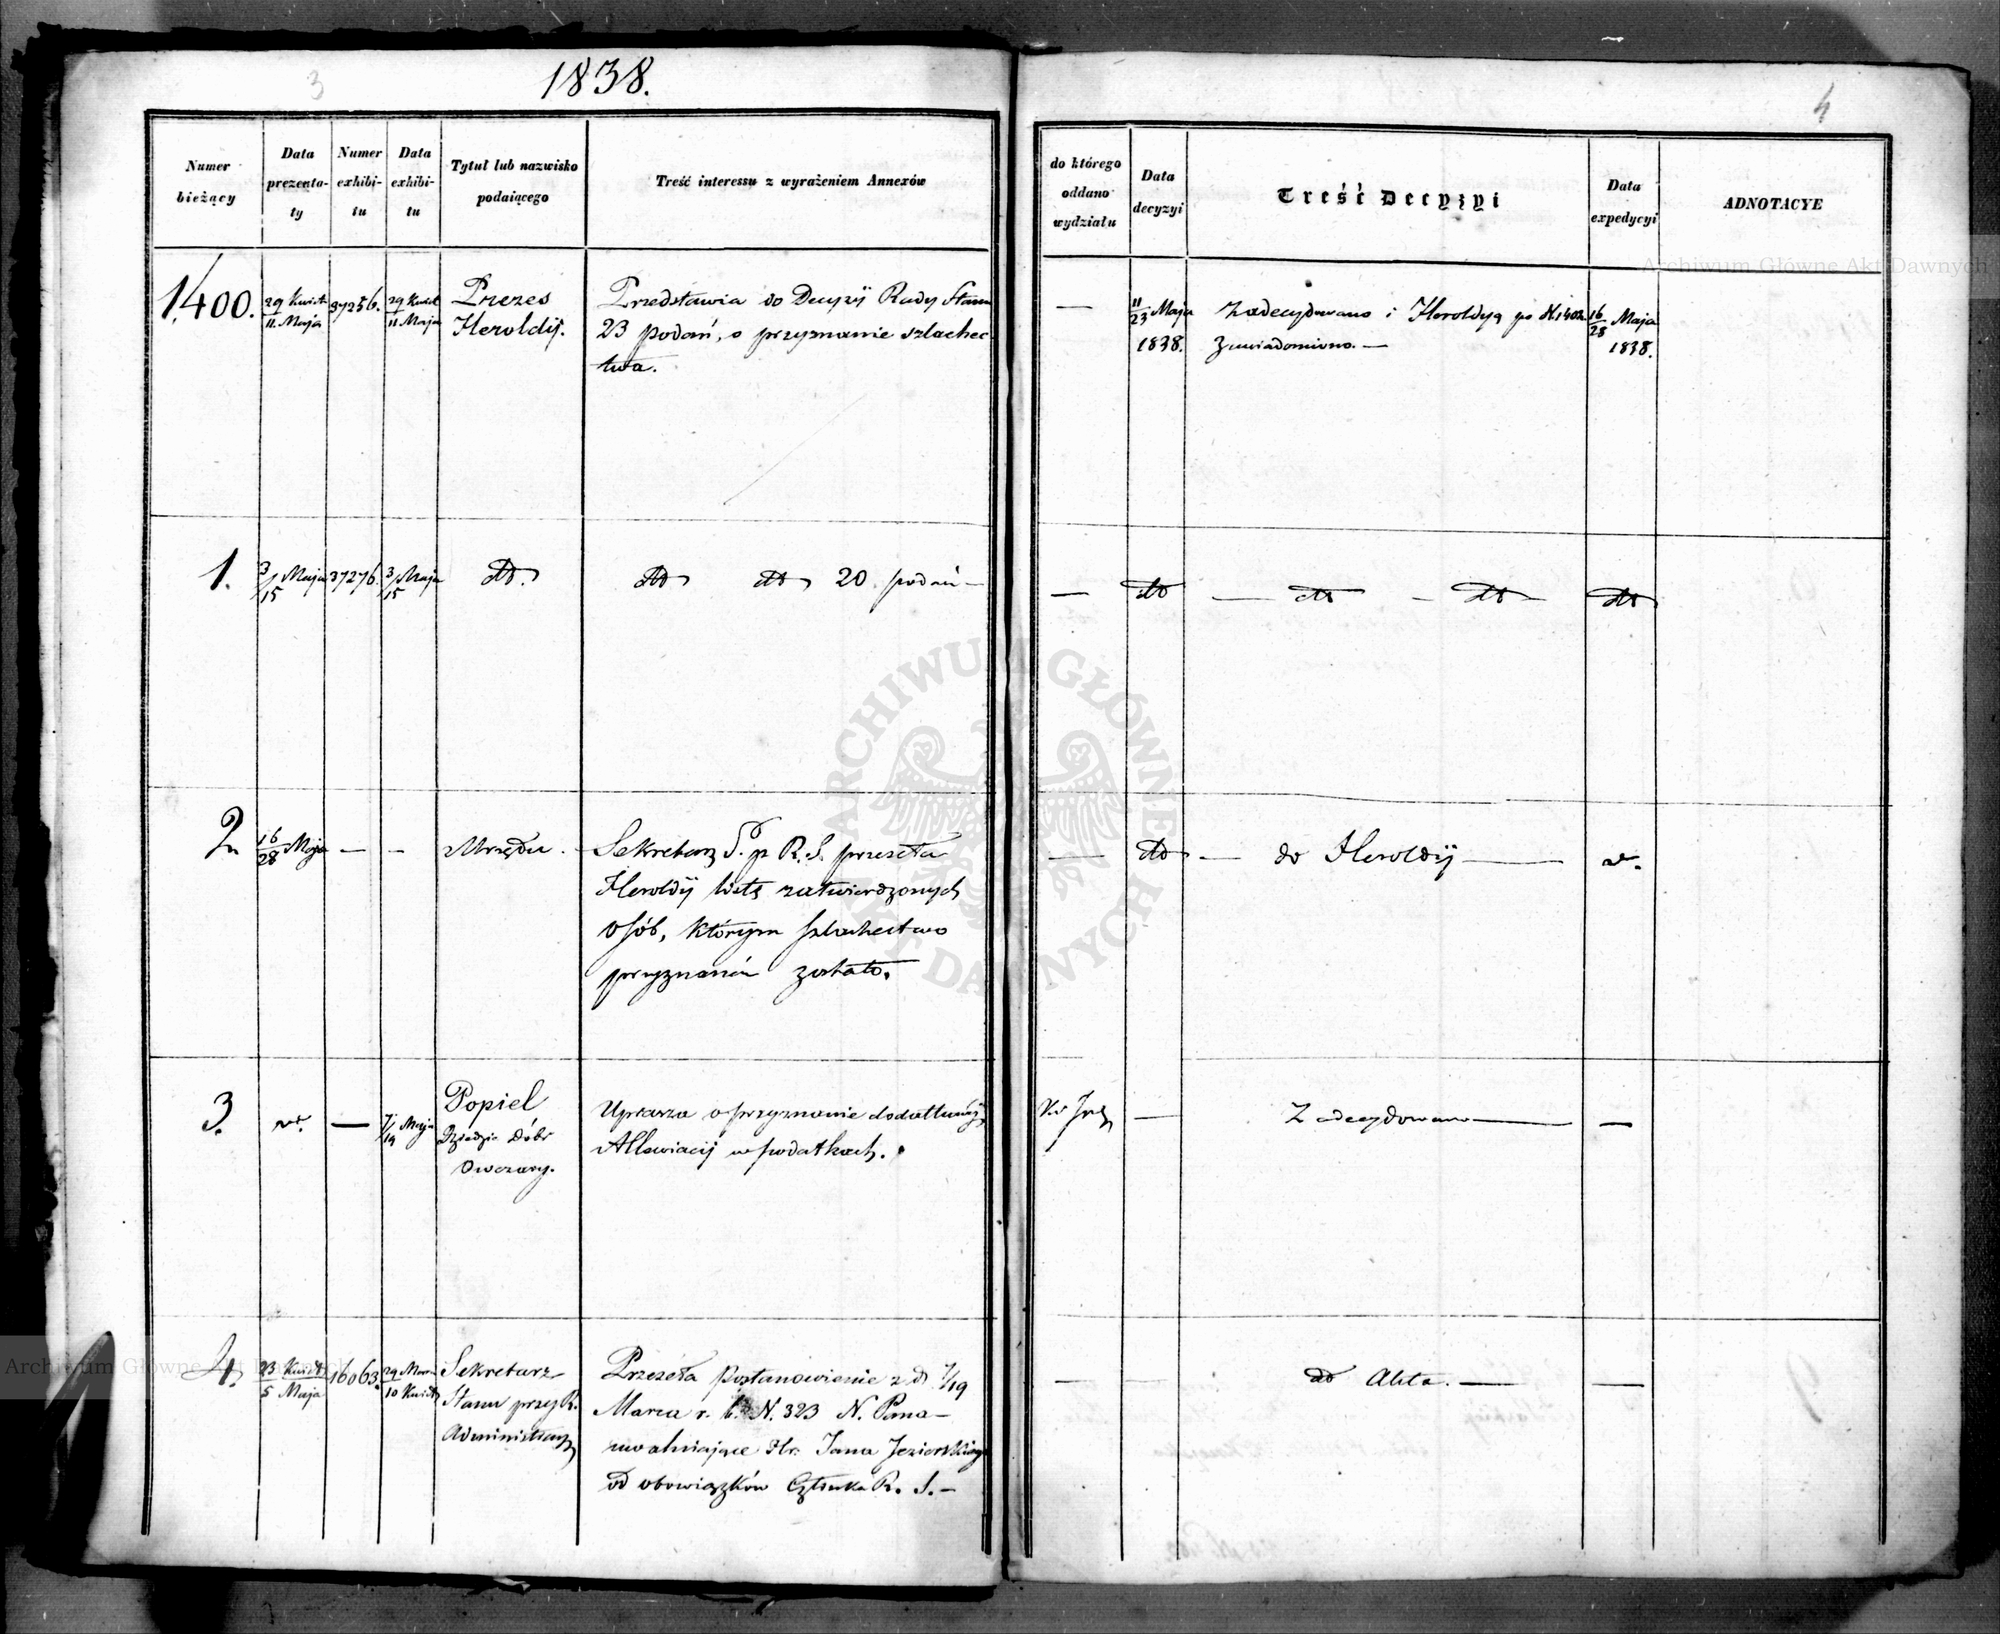 3
1838.
Numer
bieżący
Data
prezenta-
ty
Numer
exhibi-
tu
Data
exhibi-
tu
Tytuł lub nazwisko
podaiącego
Treść interessu z wyrażeniem Annexów
1,400.
29 Kwiet
11 Maja
37256.
29 Kwiet
11 Maja
Prezes
Heroldij.
Przedstawia do Decyzij Rady Stanu
23 podań, o przyznanie szlachec
twa.
1.
3/15 Maja
37276.
3/15 Maja
dto.
dto dto 20 podań —
2
16/28 Maja
—
—
z Urzędu.
Sekretarz S. p R. S. przeseła
Heroldij listę zatwierdzonych
osób, którym szlachectwo
przyznaném zostało.
3.
—
7/19 Maja
Popiel
Dziedzic Dóbr
Owczary.
Uprasza o przyznanie dodatkowéj
Allewiacij w podatkach.
4.
23 Kwiet
5 Maja
16063.
29 Mar
10 Kwiet
Sekretarz
Stanu przy R.
Administracyj
Przeseła Postanowienie z d 7/19
Marca r. b. N. 323 N. Pana —
uwalniające Hr. Jana Jezierskiego
od obowiązków Członka R. S. —
4
do którego
oddano
wydziału
Data
decyzyi
Treść Decyzyi
Data
expedycyi
ADNOTACYE
—
11/23 Maja
1838.
Zadecydowano i Heroldyą po N. 1402.
Zawiadomiono. —
16/28 Maja
1838.
—
dto
— dto — dto —
dto
—
dto
— do Heroldij —
—
Zadecydowano —
—
—
—
do Akt. —
—
Archiwum Główne Akt Dawnych
ARCHIWUM GŁÓWNE
AKT DAWNYCH
Archiwum Główne Akt Dawnych